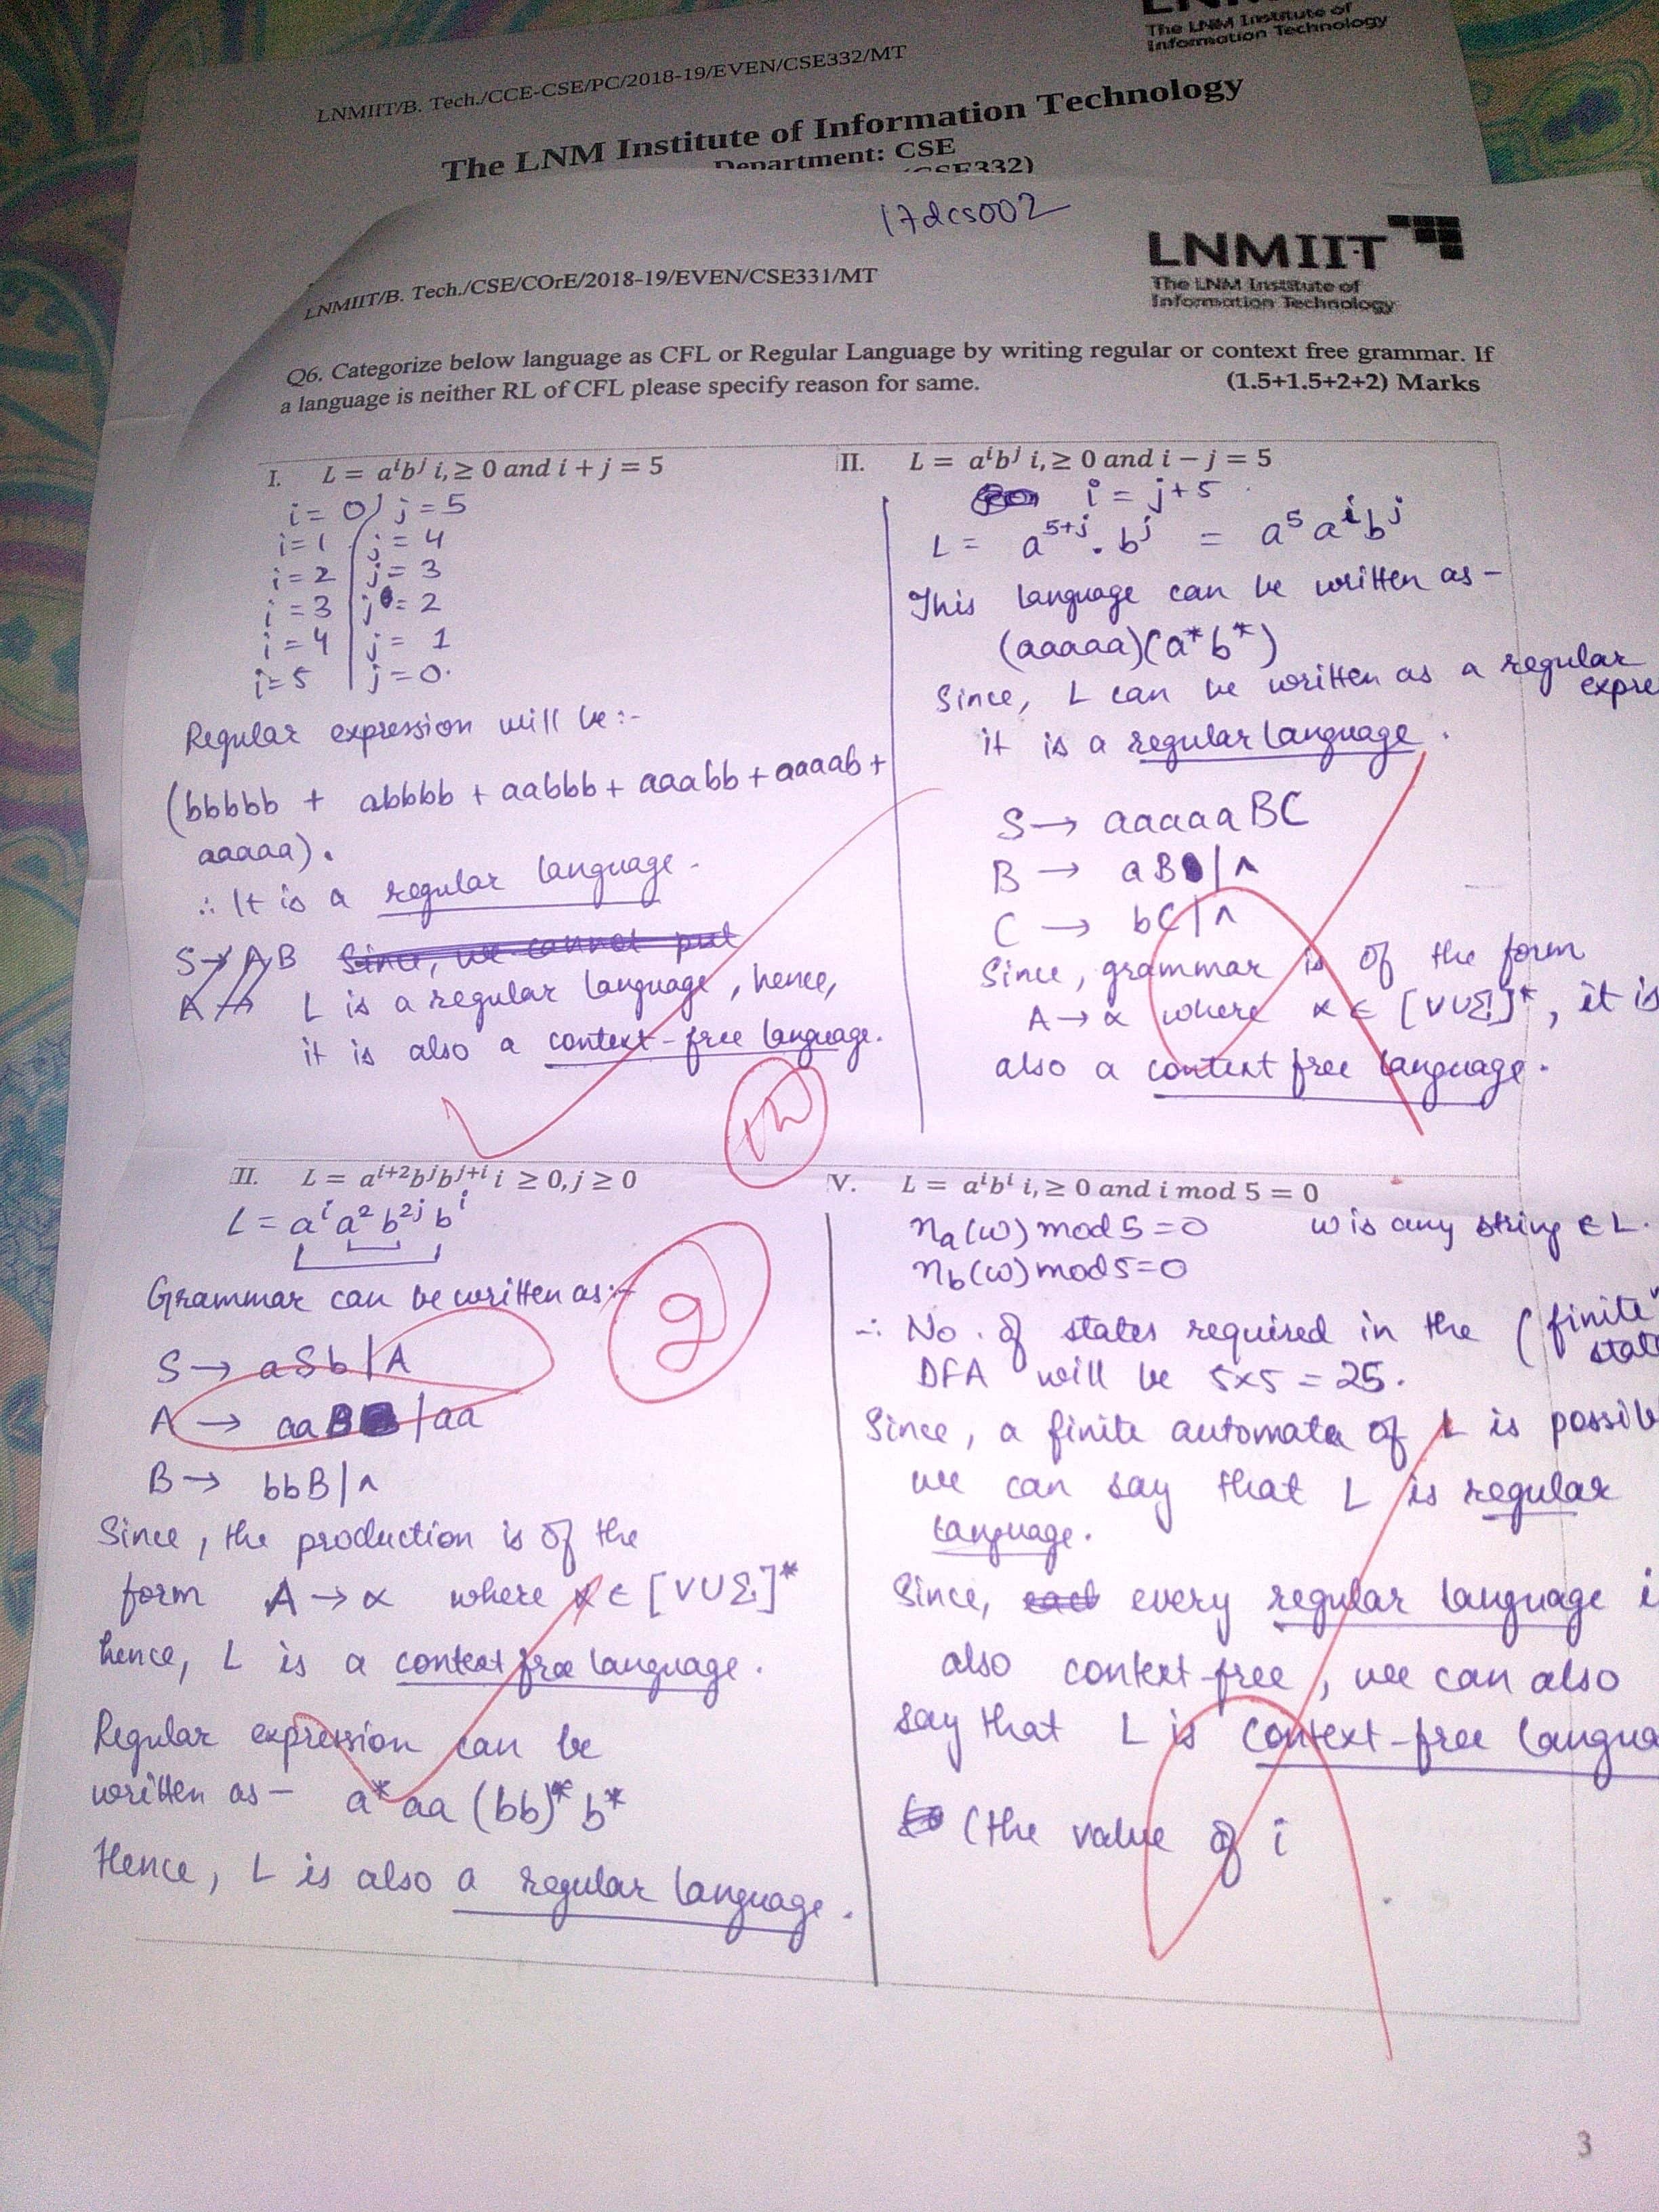 The LNM Institute of
Information Technology
LNMIIT/B. Tech./CCE-CSE/PC/2018-19/EVEN/CSE332/MT
The LNM Institute of Information Technology
Department: CSE
17dcs002
LNMIIT
The LNM Institute of
Information Technology
LNMIIT/B. Tech./CSE/COrE/2018-19/EVEN/CSE331/MT
Q6. Categorize below language as CFL or Regular Language by writing regular or context free grammar. If
a language is neither RL of CFL please specify reason for same. (1.5+1.5+2+2) Marks
I. L = aⁱbʲ i,≥ 0 and i + j = 5
i = 0 j = 5
i = 1 j = 4
i = 2 j = 3
i = 3 j = 2
i = 4 j = 1
i = 5 j = 0.
Regular expression will be :-
(bbbbb + abbbb + aabbb + aaabb + aaaab +
aaaaa).
∴ It is a regular language.
S → AB Since, we cannot put
A → L is a regular language, hence,
it is also a context-free language.
1½
II. L = aⁱbʲ i,≥ 0 and i − j = 5
i = j + 5
L = a⁵⁺ʲ . bʲ = a⁵ aⁱ bʲ
This language can be written as -
(aaaaa)(a*b*)
Since, L can be written as a regular
expre
it is a regular language.
S → aaaaaBC
B → aB | ^
C → bC | ^
Since, grammar is of the form
A → α where α ∈ [V∪Σ]*, it is
also a context free language.
II. L = aⁱ⁺²bʲbʲ⁺ⁱ i ≥ 0, j ≥ 0
L = aⁱ a² b²ʲ bⁱ
Grammar can be written as :-
2
S → aSb | A
A → aaB | aa
B → bbB | ^
Since, the production is of the
form A → α where α ∈ [V∪Σ]*
hence, L is a context free language.
Regular expression can be
written as - a* aa (bb)* b*
Hence, L is also a regular language.
V. L = aⁱbⁱ i,≥ 0 and i mod 5 = 0
nₐ(w) mod 5 = 0 w is any string ∈ L.
n_b(w) mod 5 = 0
∴ No. of states required in the (finite
stat
DFA will be 5×5 = 25.
Since, a finite automata of L is possib
we can say that L is regular
language.
Since, every regular language i
also context-free, we can also
say that L is context-free langua
(the value of i
3